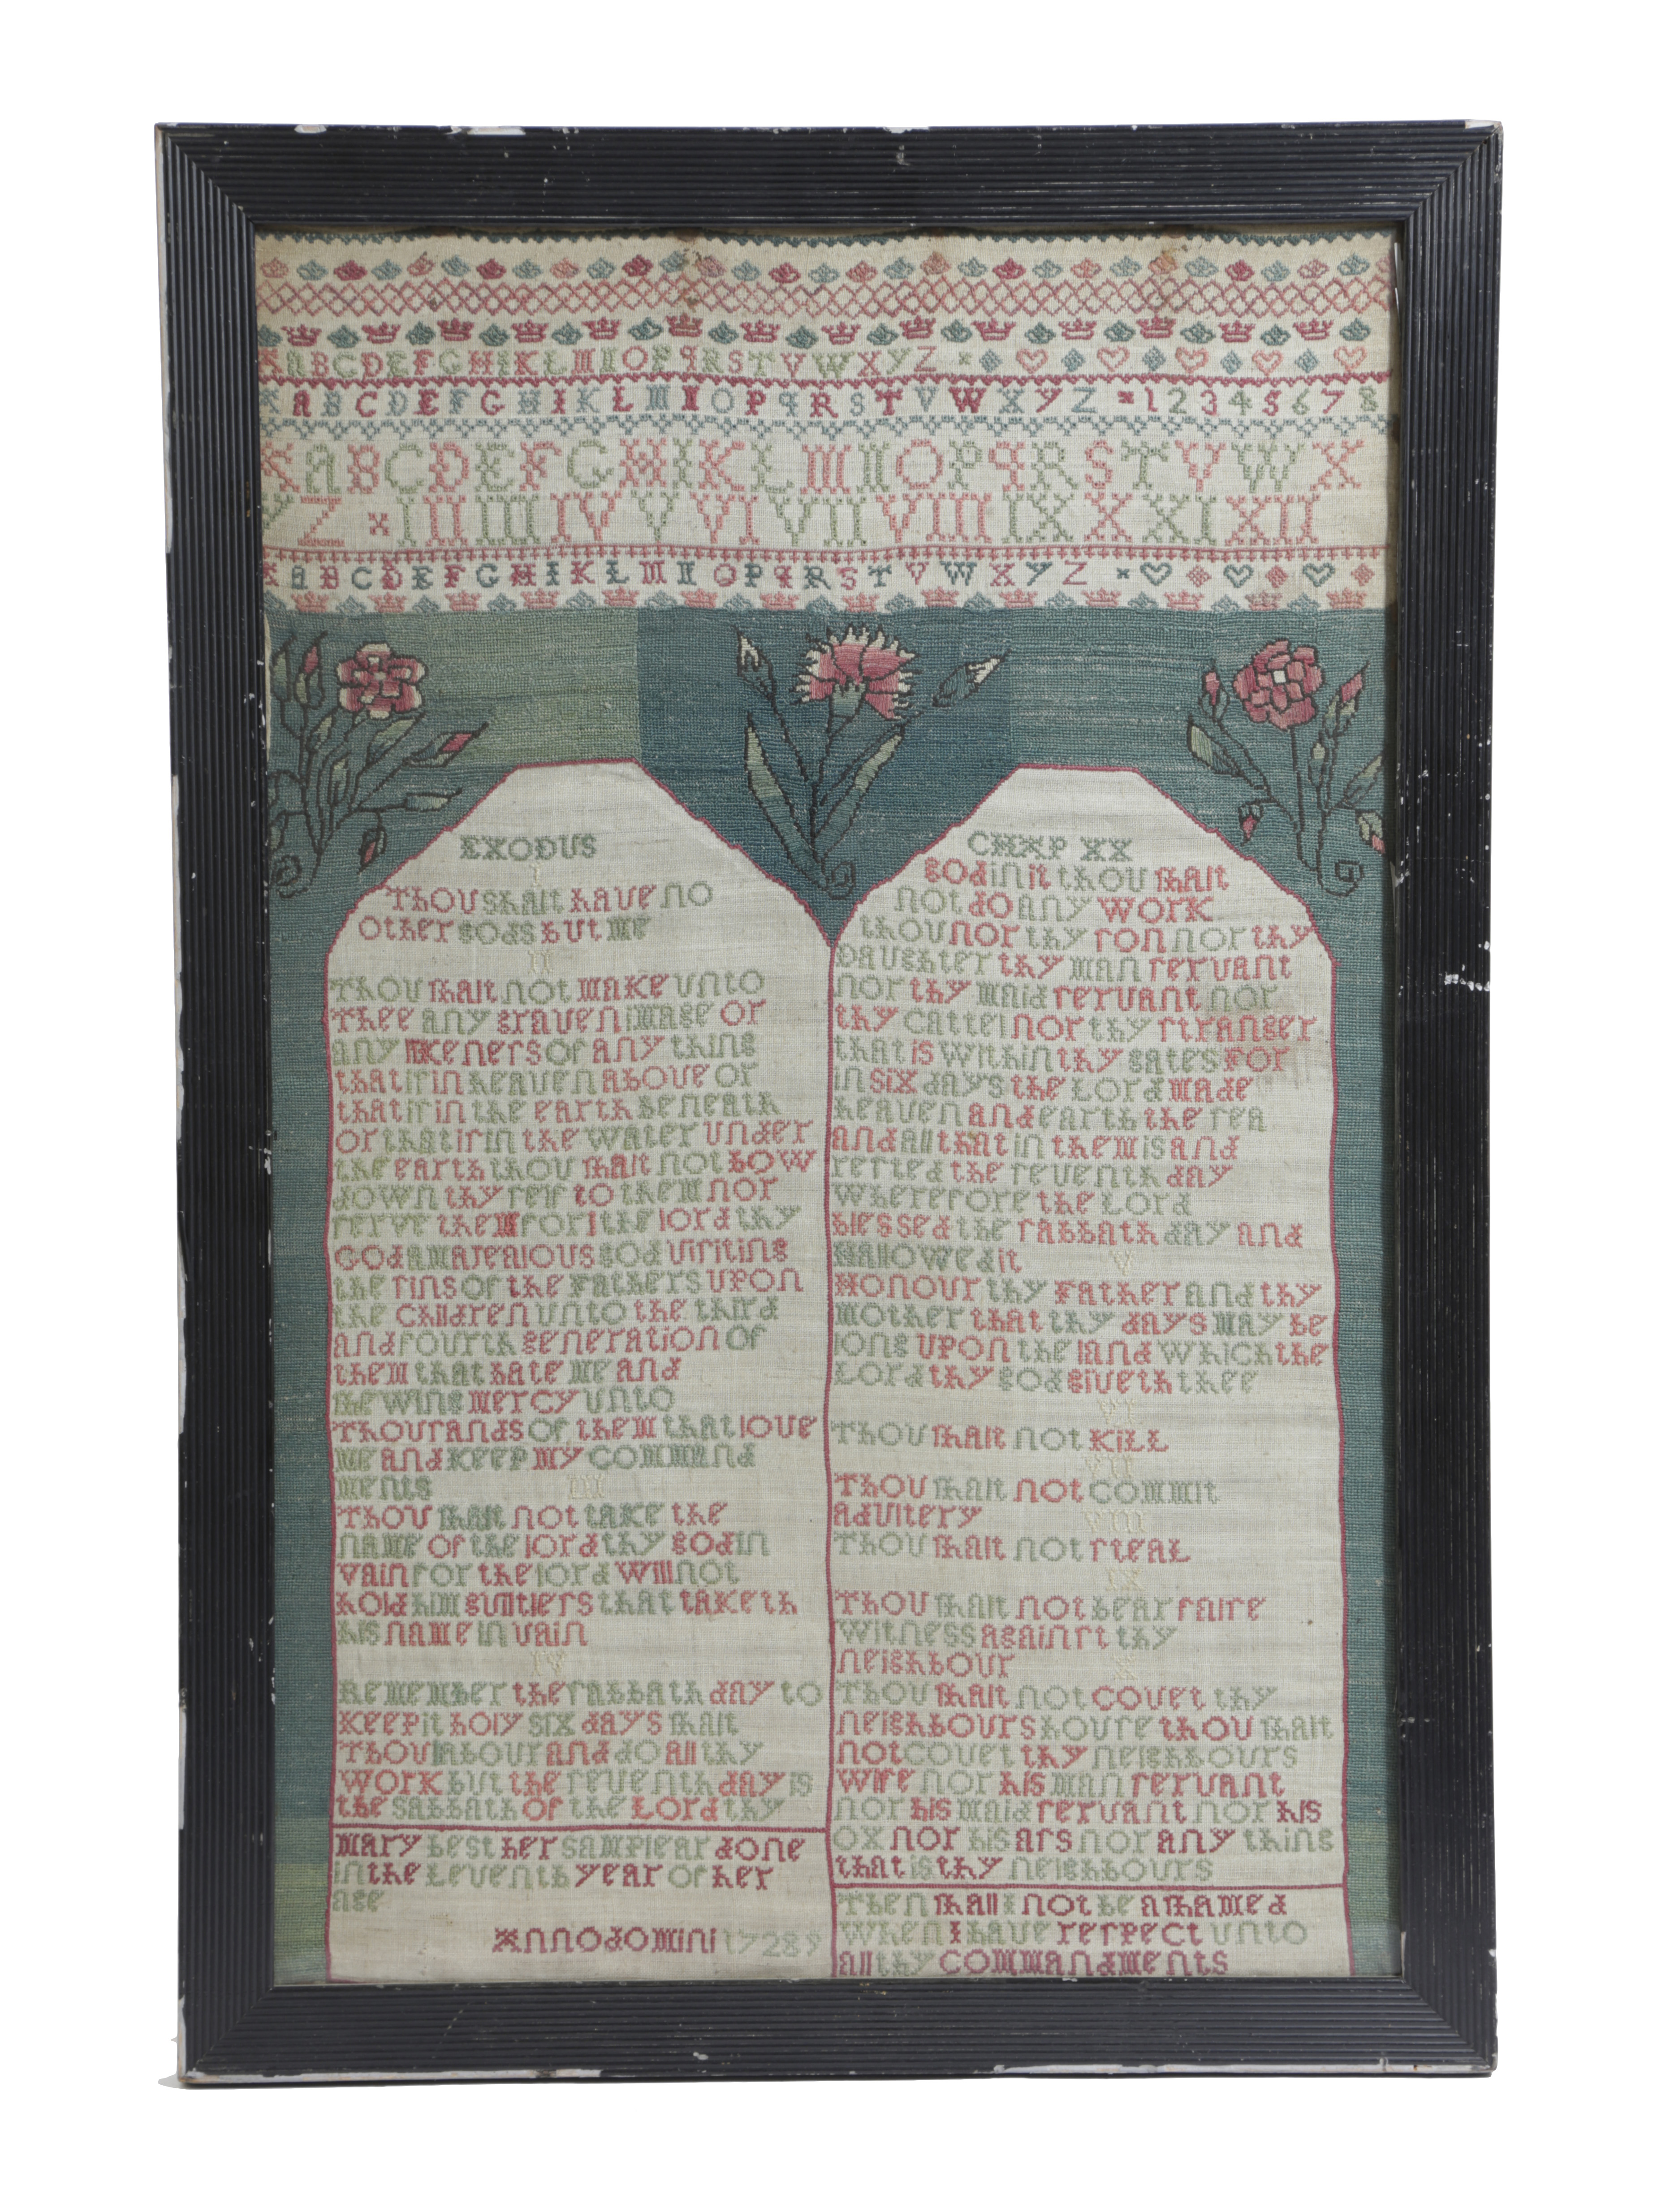 A B C D E F G H I K L M N O P q R S T V W X Y Z
A B C D E F G H I K L M N O P q R S T V W X Y Z 1 2 3 4 5 6 7 8
A B C D E F G H I K L M N O P q R S T V W X
Y Z I II III IV V VI VII VIII IX X XI XII
A B C D E F G H I K L M N O P q R S T V W X Y Z
EXODUS
I
Thou shalt have no
other gods but me
II
Thou ſhalt not make unto
thee any graven image or
any likeneſs of any thing
that iſ in heaven above or
that iſ in the earth beneath
or that iſ in the water under
the earth thou ſhalt not bow
down thy ſelf to them nor
ſerve them for I the lord thy
God am a jealous god viſiting
the ſins of the Fathers upon
the children unto the third
and fourth generation of
them that hate me and
ſhewing mercy unto
Thouſands of them that love
me and keep my command
ments III
Thou ſhalt not take the
name of the lord thy god in
vain for the lord will not
hold him guiltlers that taketh
his name in vain
IV
Remember the ſabbath day to
keep it holy six days ſhalt
Thou labour and do all thy
work but the ſeventh day is
the sabbath of the Lord thy
Mary best her samplear done
in the Eleventh year of her
age
Anno domini 1728 9
CHAP XX
god in it thou ſhalt
not do any work
thou nor thy ſon nor thy
Daughter thy man ſervant
nor thy maid ſervant nor
thy cattel nor thy ſtranger
that is within thy gates For
in six days the Lord made
heaven and earth the ſea
and all that in them is and
reſted the ſeventh day
Wherefore the Lord
blessed the ſabbath day and
Hallowed it V
Honour thy Father and thy
Mother that thy days may be
long upon the land which the
Lord thy god giveth thee
VI
Thou ſhalt not kill
VII
Thou ſhalt not commit
adultery VIII
Thou ſhalt not ſteal
IX
Thou ſhalt not bear falſe
witness againſt thy
neighbour X
Thou ſhalt not covet thy
neighbours houſe thou ſhalt
not covet thy neighbours
wife nor his man ſervant
nor his maid ſervant nor his
ox nor his aſs nor any thing
that is thy neighbours
Then ſhall I not be aſhamed
When I have reſpect unto
all thy commandments